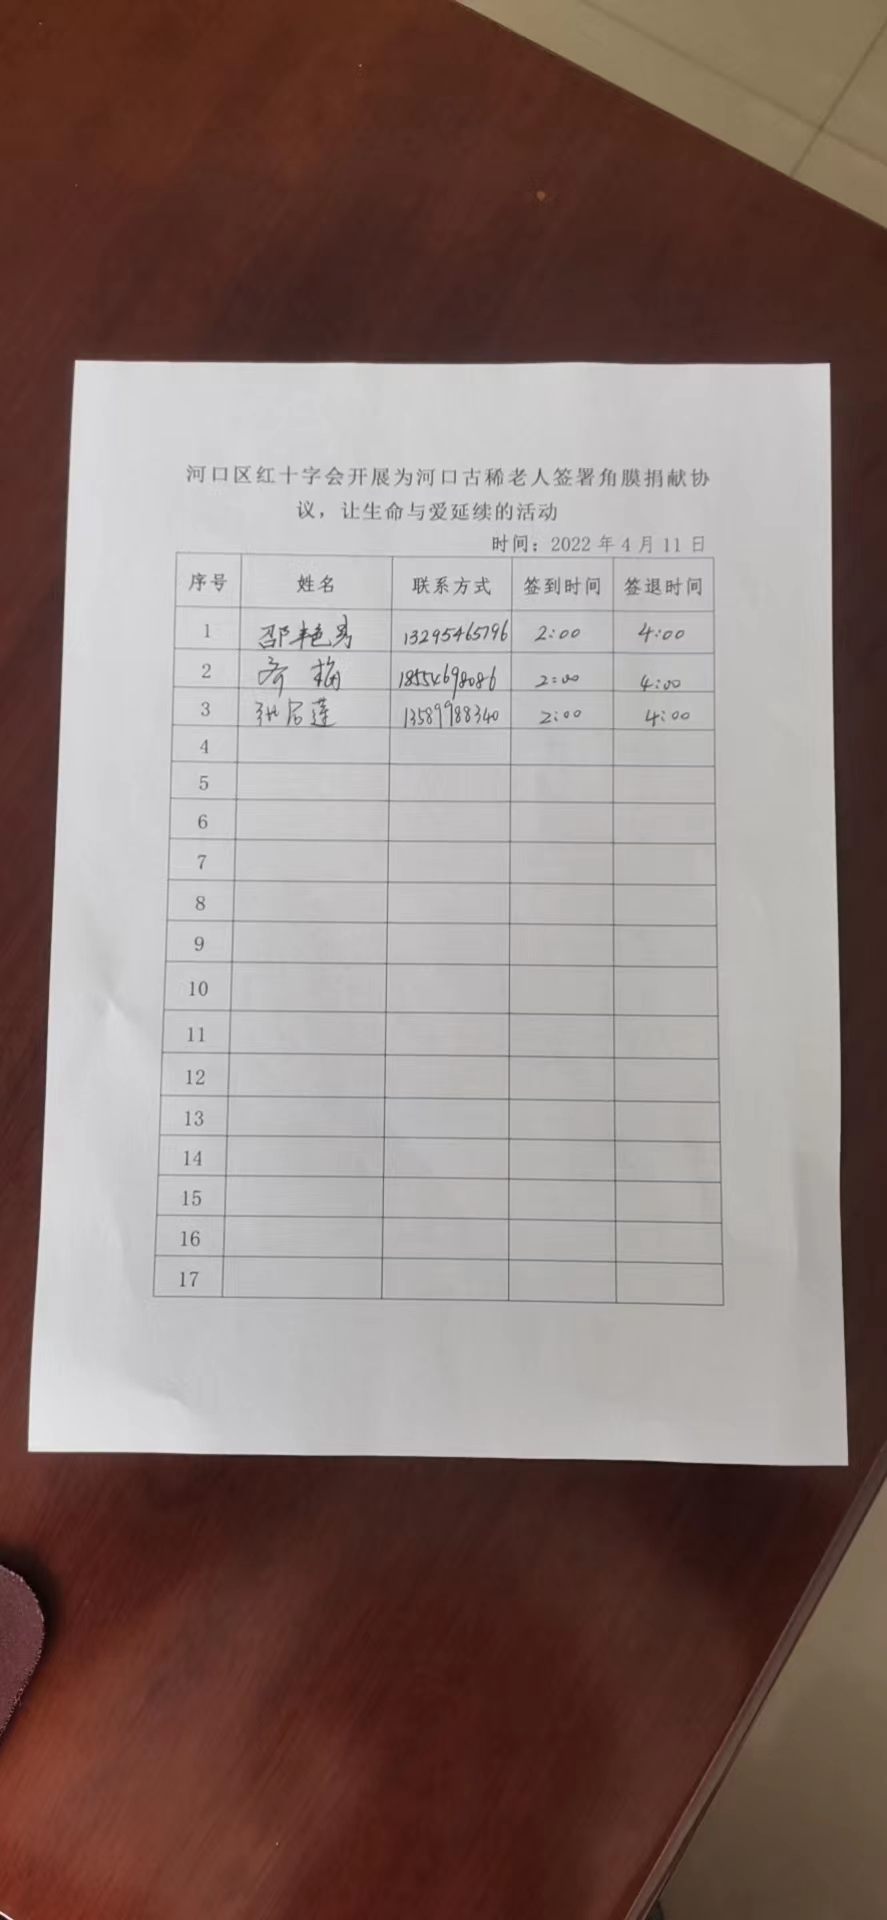 河口区红十字会开展为河口古稀老人签署角膜捐献协
议，让生命与爱延续的活动
时间：2022年4月11日
序号 姓名 联系方式 签到时间 签退时间
1 邵艳秀 13295465796 2:00 4:00
2 齐梅 18554698086 2:00 4:00
3 莲 13589988340 2:00 4:00
4
5
6
7
8
9
10
11
12
13
14
15
16
17